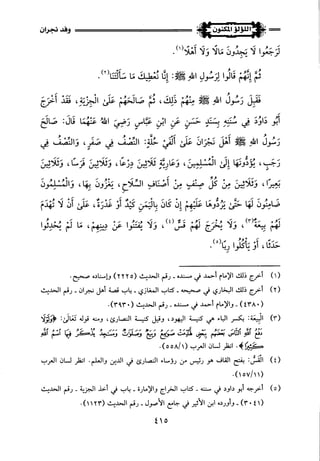 اللؤلؤ المكنون
وفد نجران
لرجعوا لا يجدون مالا ولا أهلا(١).
ثم إنهم قالوا لرسول الله ﷺ: إنا نعطيك ما سألتنا(٢).
فقبل رسول الله ﷺ منهم ذلك، ثم صالحهم على الجزية، فقد أخرج
أبو داود في سننه بسند حسن عن ابن عباس رضي الله عنهما قال: صالح
رسول الله ﷺ أهل نجران على ألفي حلة: النصف في صفر، والنصف في
رجب، يؤدونها إلى المسلمين، وعارية ثلاثين درعا، وثلاثين فرسا، وثلاثين
بعيرا، وثلاثين من كل صنف من أصناف السلاح، يغزون بها، والمسلمون
ضامنون لها حتى يردوها عليهم إن كان باليمن كيد أو غدرة، على أن لا تهدم
لهم بيعة(٣)، ولا يخرج لهم قس(٤)، ولا يفتنوا عن دينهم، ما لم يحدثوا
حدثا، أو يأكلوا ربا(٥).
(١) أخرج ذلك الإمام أحمد في مسنده - رقم الحديث (٢٢٢٥) وإسناده صحيح.
(٢) أخرج ذلك البخاري في صحيحه - كتاب المغازي - باب قصة أهل نجران - رقم الحديث
(٤٣٨٠) - والإمام أحمد في مسنده - رقم الحديث (٣٩٣٠).
(٣) البيعة: بكسر الباء هي كنيسة اليهود، وقيل كنيسة النصارى، ومنه قوله تعالى: ﴿ولولا
دفع الله الناس بعضهم ببعض لهدمت صوامع وبيع وصلوات ومساجد يذكر فيها اسم الله
كثيرا﴾. انظر لسان العرب (٥٥٨/١).
(٤) القس: بفتح القاف هو رئيس من رؤساء النصارى في الدين والعلم. انظر لسان العرب
(١٥٧/١١).
(٥) أخرجه أبو داود في سننه - كتاب الخراج والإمارة - باب في أخذ الجزية - رقم الحديث
(٣٠٤١) - وأورده ابن الأثير في جامع الأصول - رقم الحديث (١١٢٣).
٤١٥